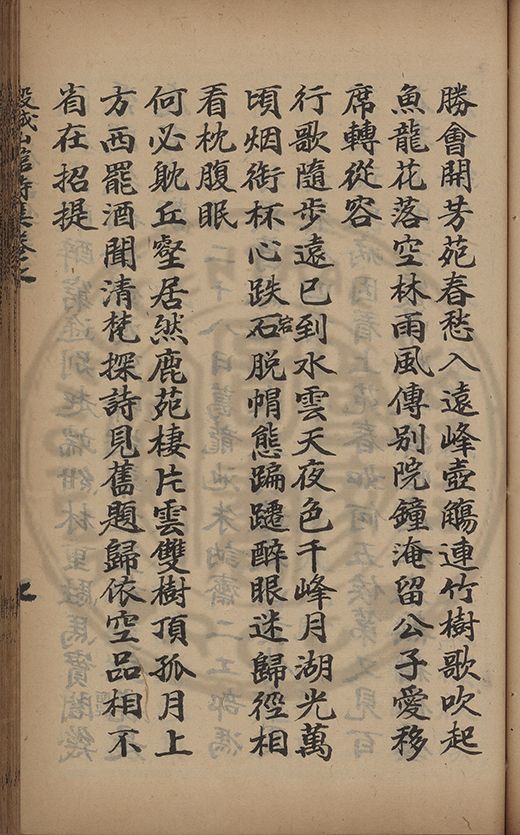 勝會開芳苑春愁入遠峰壺觴連竹樹歌吹起
魚龍花落空林雨風傳别院鐘淹留公子愛移
席轉從容
行歌隨步遠已到水雲天夜色千峰月湖光萬
頃烟銜杯心跌宕石脱帽態蹁躚醉眼迷歸徑相
看枕腹眠
何必躭丘壑居然鹿苑棲片雲雙樹頂孤月上
方西罷酒聞清梵探詩見舊題歸依空品相不
省在招提